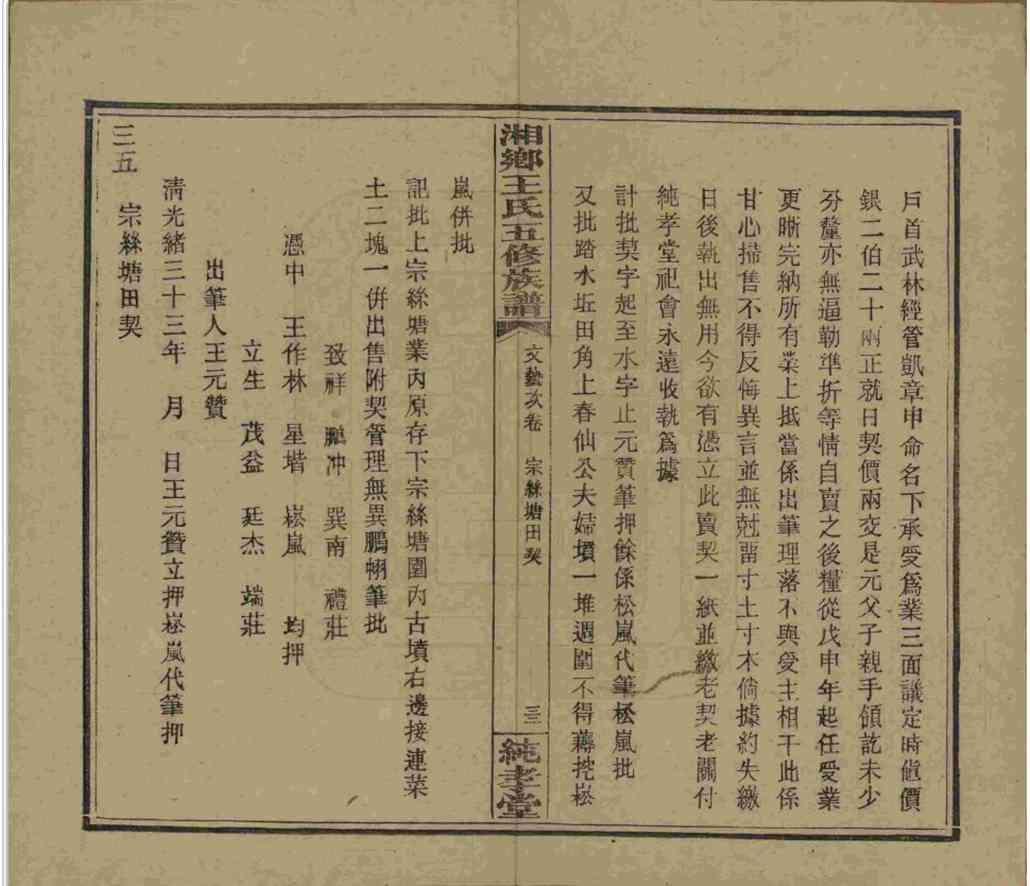 戶首武林經管凱章申命名下承受爲業三面議定時值價
銀二伯二十兩正就日契價兩交是元父子親手領訖未少
分釐亦無逼勒準折等情自賣之後糧從戊申年起任受業
更晰完納所有業上抵當係出筆理落不與受主相干此係
甘心掃售不得反悔異言並無尅畱寸土寸木倘據約失繳
日後執出無用今欲有憑立此賣契一紙並繳老契老關付
純孝堂祀會永遠收執爲據
計批契字起至水字止元贊筆押餘係松嵐代筆松嵐批
又批踏水坵田角上春仙公夫婦墳一堆週圍不得挖崧
湘鄉王氏五修族譜
文藝次卷 宗絲塘田契
三三
純孝堂
嵐併批
記批上宗絲塘業內原存下宗絲塘園內古墳右邊接連菜
土二塊一併出售附契管理無異鵬翃筆批
致祥 鵬冲 巽南 禮莊
憑中 王作林 星堦 崧嵐 均押
立生 茂益 廷杰 端莊
出筆人王元贊
清光緒三十三年 月 日王元贊立押崧嵐代筆押
三五 宗絲塘田契